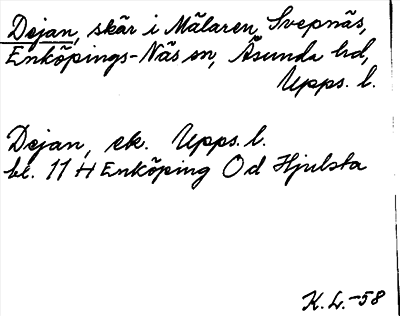 Dejan, skär i Mälaren, Svepnäs,
Enköpings-Näs sn, Åsunda hd,
Upps. l.
Dejan, ek. Upps. l.
bl. 11 H Enköping Od Hjulsta
K. L. -58